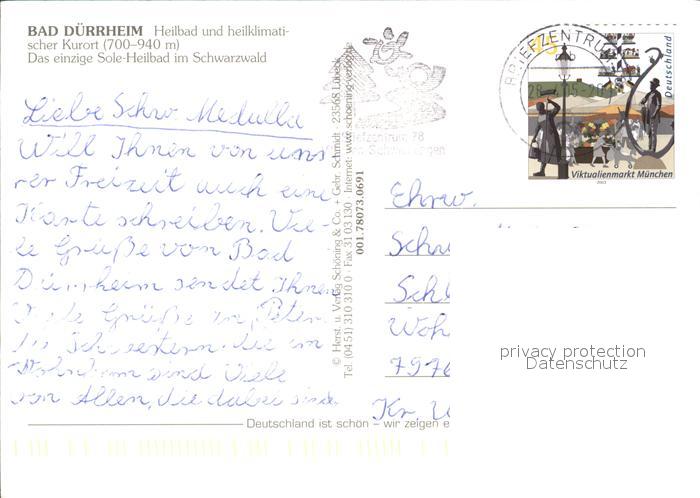 BAD DÜRRHEIM Heilbad und heilklimati-
scher Kurort (700–940 m)
Das einzige Sole-Heilbad im Schwarzwald
Liebe Schw. Medulla
Will Ihnen von uns
rer Freizeit auch eine
Karte schreiben. Vie-
le Grüße von Bad
Dürrheim sendet Ihnen
Viele Grüße an
die Schwestern. die im
Wohnheim sind Viele
von Allen, die dabei sind.
© Herst. u. Verlag Schöning & Co. + Gebr. Schmidt · 23568 Lübeck
Tel. (04 51) 310 310 0 · Fax 31 03 130 · Internet: www.schoening-verlag.de
001.78073.0691
BRIEFZENTRUM
Briefzentrum 78
45
Deutschland
Viktualienmarkt München
2003
Ehrw.
Schw
Schl
Woh
Kr.
privacy protection
Datenschutz
Deutschland ist schön – wir zeigen e